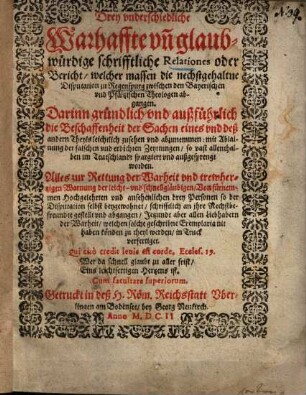 Drey vnderschiedliche
Warhaffte vñ glaub-
würdige schrifftliche Relationes oder
Bericht / welcher massen die nechstgehaltne
Disputation zu Regenspurg zwischen den Bayerischen
vnd Pfältzischen Theologen ab-
gangen.
Darinn gründlich vnd außführlich
die Beschaffenheit der Sachen eines vnd deß
andern Theyls leichtlich zusehen vnd abzunemmen: mit Ablai-
nung der falschen vnd erdichten Zeyttungen / so vast allenthal-
ben im Teutschlandt spargiert vnd außgesprengt
worden.
Alles zur Rettung der Warheit vnd trewher-
tziger Warnung der leicht- vnd schnellglaubigen / Von fürnem-
men Hochgelehrten vnd ansehenlichen drey Personen so der
Disputation selbst beygewohnet / schrifftlich an jhre Rechtsbe-
freundte gestellt vnd abgangen / Jetzunde aber allen Liebhabern
der Warheit / welchen solche geschribne Exemplaria nit
haben könden zu theyl werden / in Truck
verfertiget.
Qui citò credit leuis est corde, Eccles. 19.
Wer da schnell glaubt zu aller frist /
Eins leichtfertigen Hertzens ist.
Cum facultate superiorum.
Getruckt in deß H. Röm. Reichsstatt Vber-
lingen am Bodensee / bey Georg Neukirch.
Anno M.D.C.II